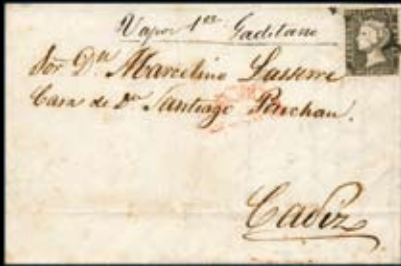 Vapor 1er Gaditano
Sor Dn Marcelino Lasserre
Casa de Dn Santiago
Cadiz